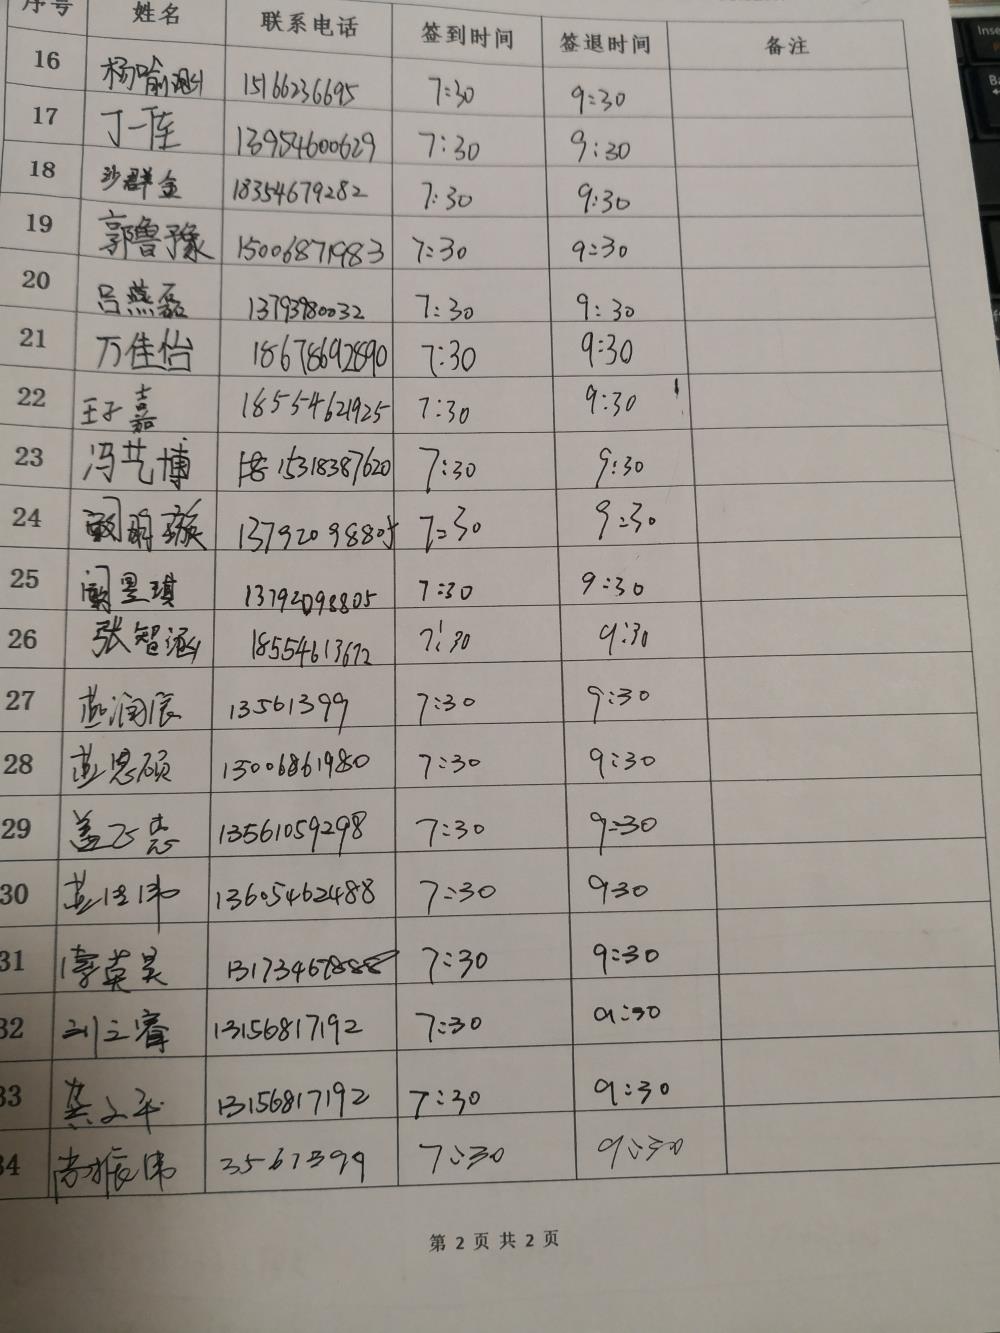 序号 姓名 联系电话 签到时间 签退时间 备注
16 杨喻涵 15166236695 7:30 9:30
17 丁一 13954600629 7:30 9:30
18 沙群金 18354679282 7:30 9:30
19 郭鲁豫 15006871983 7:30 9:30
20 吕燕磊 13793980032 7:30 9:30
21 万佳怡 18678692890 7:30 9:30
22 王子嘉 18554621925 7:30 9:30
23 冯艺博 15318387620 7:30 9:30
24 13792098805 7:30 9:30
25 13792098805 7:30 9:30
26 张智涵 18554613672 7:30 9:30
27 燕润辰 13561399 7:30 9:30
28 燕思硕 15006861980 7:30 9:30
29 盖 13561059298 7:30 9:30
30 13605462488 7:30 930
31 李英昊 7:30 9:30
32 刘立睿 13156817192 7:30 9:30
33 13156817192 7:30 9:30
34 尚振伟 7:30 9:30
第 2 页 共 2 页
Inse
Ba